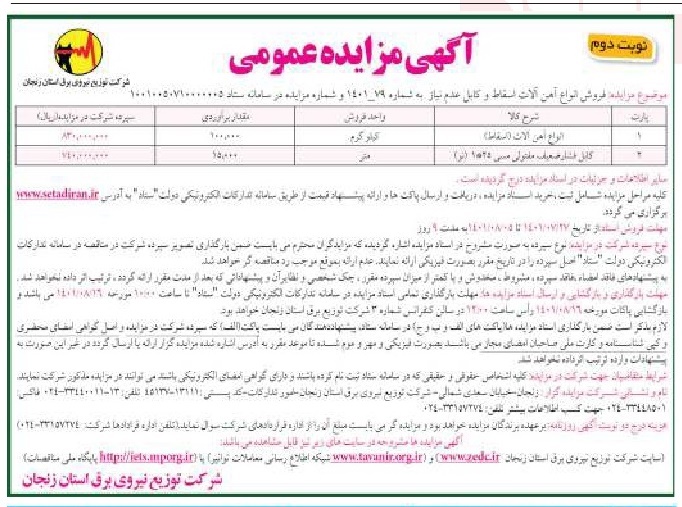 آگهی مزایده عمومی
نوبت دوم
شرکت توزیع نیروی برق استان زنجان
موضوع مزایده: فروش انواع آهن آلات اسقاط و کابل عدم نیاز به شماره ۷۹_۱۴۰۱ و شماره مزایده در سامانه ستاد ۱۰۰۱۰۰۵۰۷۱۰۰۰۰۰۵
پارت شرح کالا واحد فروش مقدار برآوردی سپرده شرکت در مزایده(ریال)
۱ انواع آهن آلات (اسقاط) کیلو گرم ۱۰۰,۰۰۰ ۸۳۰,۰۰۰,۰۰۰
۲ کابل فشارضعیف مفتولی مسی (نو) متر ۱۵,۰۰۰ ۷۴۰,۰۰۰,۰۰۰
سایر اطلاعات و جزئیات در اسناد مزایده درج گردیده است.
کلیه مراحل مزایده شامل ثبت ،خرید اسناد مزایده ، دریافت و ارسال پاکت ها و ارائه پیشنهاد قیمت از طریق سامانه تدارکات الکترونیکی دولت "ستاد" به آدرس www.setadiran.ir
برگزاری می گردد.
مهلت فروش اسناد:از تاریخ ۱۴۰۱/۰۷/۲۷ تا ۱۴۰۱/۰۸/۰۵ به مدت ۹ روز
نوع سپرده شرکت در مزایده: نوع سپرده به صورت مشروح در اسناد مزایده اشاره گردیده که مزایدگران محترم می بایست ضمن بارگذاری تصویر سپرده شرکت در مناقصه در سامانه تدارکات
الکترونیکی دولت "ستاد" اصل سپرده را در تاریخ مقرر بصورت فیزیکی ارائه نمایند. عدم ارائه بموقع موجب رد مناقصه گر خواهد شد.
به پیشنهادهای فاقد امضاء ،فاقد سپرده ، مشروط ، مخدوش و یا کمتر از میزان سپرده مقرر ، چک شخصی و نظایر آن و پیشنهاداتی که بعد از مدت مقرر ارائه گردد ، ترتیب اثر داده نخواهد شد .
مهلت بارگذاری و بازگشایی و ارسال اسناد مزایده ها: مهلت بارگذاری تمامی اسناد مزایده در سامانه تدارکات الکترونیکی دولت "ستاد" تا ساعت ۱۰:۰۰ مورخه ۱۴۰۱/۰۸/۱۶ می باشد و
بازگشایی پاکات مورخه ۱۴۰۱/۰۸/۱۶ رأس ساعت ۱۲:۰۰ در سالن کنفرانس شماره ۳ شرکت توزیع برق استان زنجان خواهد بود.
لازم بذکر است ضمن بارگذاری اسناد مزایده ها(پاکت های الف و ب و ج) در سامانه ستاد، پیشنهاددهندگان می بایست پاکت(الف) که سپرده شرکت در مزایده و اصل گواهی امضای محضری
و کپی شناسنامه و کارت ملی صاحبان امضای مجاز می باشد بصورت فیزیکی و مهر و موم شده تا موعد مقرر به آدرس اشاره شده مزایده گزار ارائه یا ارسال گردد در غیر این صورت به
پیشنهادات وارده ترتیب اثر داده نخواهد شد.
شرایط متقاضیان جهت شرکت در مزایده: کلیه اشخاص حقوقی و حقیقی که در سامانه ستاد ثبت نام کرده باشند و دارای گواهی امضای الکترونیکی باشند می توانند در مزایده مذکور شرکت نمایند.
نام و نشانی شرکت مزایده گزار : زنجان-خیابان سعدی شمالی- شرکت توزیع نیروی برق استان زنجان-امور تدارکات-کد پستی: ۴۵۱۳۷-۱۳۱۲۱ تلفن: ۱۳-۳۳۴۴۰۰۱۱-۰۲۴ فاکس:
۰۲۴-۳۳۴۴۸۵۰۱ جهت کسب اطلاعات بیشتر تلفن: ۳۳۱۵۷۲۷۴-۰۲۴
هزینه درج دو نوبت آگهی روزنامه: برعهده برندگان مزایده خواهد بود و مزایده گر می بایست مبلغ آن را از اداره قراردادهای شرکت سوال نماید.(تلفن اداره قراردادها شرکت: ۳۳۱۵۷۲۷۴-۰۲۴)
آگهی مزایده ها مشروحه در سایت های زیر نیز قابل مشاهده می باشد:
(سایت شرکت توزیع نیروی برق استان زنجان www.zedc.ir) و (www.tavanir.org.ir شبکه اطلاع رسانی معاملات توانیر) یا (http://iets.mporg.ir پایگاه ملی مناقصات)
شرکت توزیع نیروی برق استان زنجان